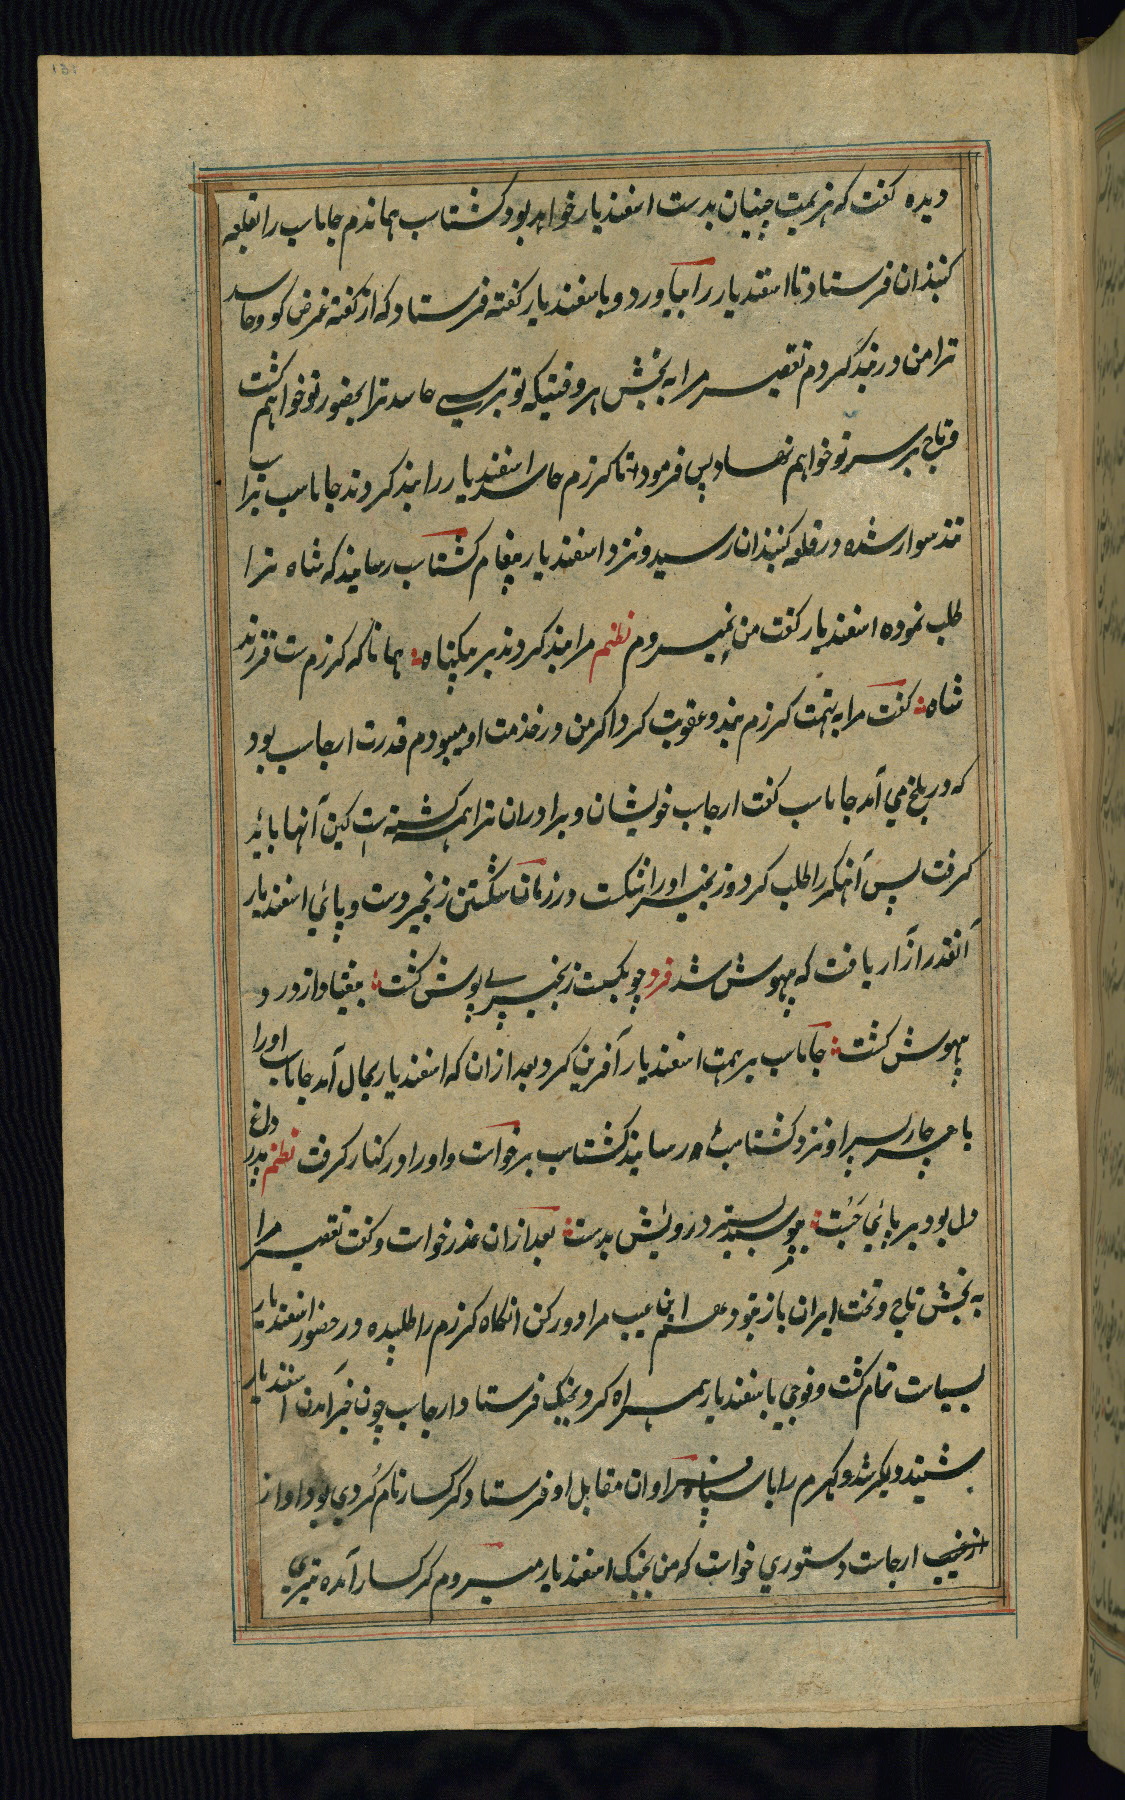 دیده گفت که هزیمت چینیان بدست اسفندیار خواهد بود گشتاسب هماندم جاماسب را بقلعه
گنبذان فرستاد تا اسفندیار را بیاورد و باسفندیار گفته فرستاد که از گفته غرض گو و حاسد
ترا من در بند کردم تقصیر مرا به بخش هر وقتیکه تو برسی حاسد ترا بحضور تو خواهم کشت
و تاج بر سر تو خواهم نهاد پس فرمود تا گرزم حاسد اسفندیار را بند کردند جاماسب
تند سوار شده در قلعه گنبذان رسید و نزد اسفندیار پیغام گشتاسب رسانید که شاه ترا
طلب نموده اسفندیار گفت من نمیروم نظم مرا بند کردند بر بیگناه همانا که گرزم ست فرزند
شاه گفت مرا به تهمت گرزم بند و عقوبت کرد اگر من در خدمت او میبودم قدرت ارجاسب بود
که در بلخ می آمد جاماسب گفت ارجاسب خویشان و برادران ترا همه کشته است کین آنها باید
گرفت پس آهنگر را طلب کرد و زنجیر او را شکست در زمان شکستن زنجیر دست و پائی اسفندیار
آنقدر آزار یافت که بیهوش شد فرد چو بگسست زنجیر بی توش گشت بیفتاد از درد و
بیهوش گشت جاماسب بر همت اسفندیار آفرین کرد بعد ازان که اسفندیار بحال آمد جاماسب او را
با هر چار پسر او نزد گشتاسب رسانید گشتاسب برخواست و او را در کنار گرفت نظم پدر داغ
دل بود بر پای جست ببوسید بستر در رویش بدست بعد ازان عذر خواست و گفت تقصیر مرا
به بخش تاج و تخت ایران باز بتو دهم این عیب مرا دور کن انگاه گرزم را طلبیده در حضور اسفندیار
بسیاست تمام کشت و فوجی باسفندیار همراه کرد بجنگ فرستاد و ارجاسب چون خبر آمدن اسفندیار
بشنید دیگر شد و کهرم را با سپاه فراوان مقابل او فرستاد گرگسار نام گردی بود او از
ارجاست دستوری خواست که من بجنگ اسفندیار میروم گرگسار آمده تیری